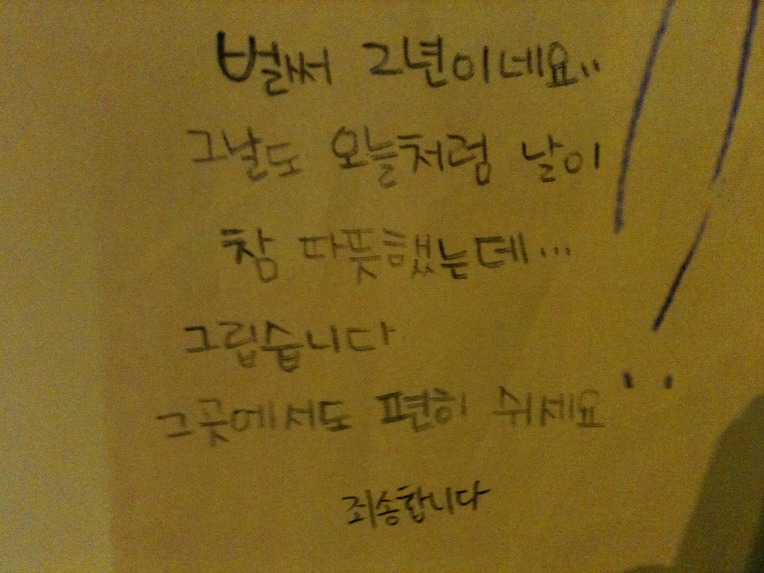 벌써 2년이네요..
그날도 오늘처럼 날이
참 따뜻했는데...
그립습니다
그곳에서도 편히 쉬세요
죄송합니다